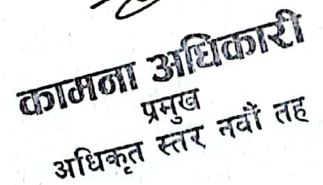 कामना अधिकारी
प्रमुख
अधिकृत स्तर नवौं तह